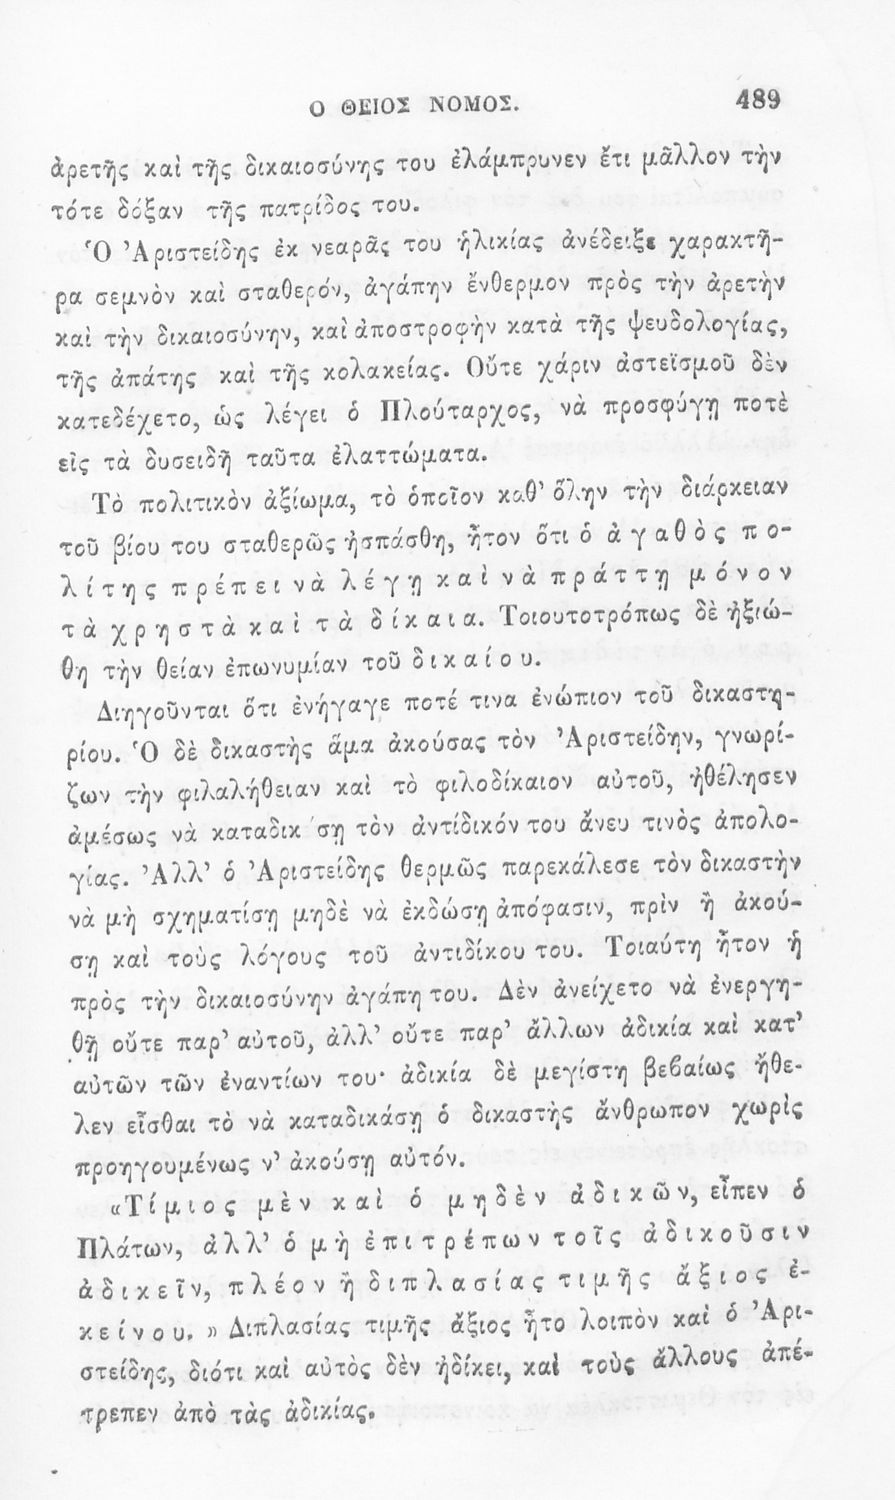 Ο ΘΕΙΟΣ ΝΟΜΟΣ. 489
ἀρετῆς καὶ τῆς δικαιοσύνης του ἐλάμπρυνεν ἔτι μᾶλλον τὴν
τότε δόξαν τῆς πατρίδος του.
Ὁ Ἀριστείδης ἐκ νεαρᾶς του ἡλικίας ἀνέδειξε χαρακτῆ-
ρα σεμνὸν καὶ σταθερόν, ἀγάπην ἔνθερμον πρὸς τὴν ἀρετὴν
καὶ τὴν δικαιοσύνην, καὶ ἀποστροφὴν κατὰ τῆς ψευδολογίας,
τῆς ἀπάτης καὶ τῆς κολακείας. Οὔτε χάριν ἀστεϊσμοῦ δὲν
κατεδέχετο, ὡς λέγει ὁ Πλούταρχος, νὰ προσφύγῃ ποτὲ
εἰς τὰ δυσειδῆ ταῦτα ἐλαττώματα.
Τὸ πολιτικὸν ἀξίωμα, τὸ ὁποῖον καθ' ὅλην τὴν διάρκειαν
τοῦ βίου του σταθερῶς ἠσπάσθη, ἦτον ὅτι ὁ ἀγαθὸς πο-
λίτης πρέπει νὰ λέγῃ καὶ νὰ πράττῃ μόνον
τὰ χρηστὰ καὶ τὰ δίκαια. Τοιουτοτρόπως δὲ ἠξιώ-
θη τὴν θείαν ἐπωνυμίαν τοῦ δικαίου.
Διηγοῦνται ὅτι ἐνήγαγε ποτέ τινα ἐνώπιον τοῦ δικαστη-
ρίου. Ὁ δὲ δικαστὴς ἅμα ἀκούσας τὸν Ἀριστείδην, γνωρί-
ζων τὴν φιλαλήθειαν καὶ τὸ φιλοδίκαιον αὐτοῦ, ἠθέλησεν
ἀμέσως νὰ καταδικ΄σῃ τὸν ἀντίδικόν του ἄνευ τινὸς ἀπολο-
γίας. Ἀλλ' ὁ Ἀριστείδης θερμῶς παρεκάλεσε τὸν δικαστὴν
νὰ μὴ σχηματίσῃ μηδὲ νὰ ἐκδώσῃ ἀπόφασιν, πρὶν ἢ ἀκού-
σῃ καὶ τοὺς λόγους τοῦ ἀντιδίκου του. Τοιαύτη ἦτον ἡ
πρὸς τὴν δικαιοσύνην ἀγάπη του. Δὲν ἀνείχετο νὰ ἐνεργη-
θῇ οὔτε παρ' αὐτοῦ, ἀλλ' οὔτε παρ' ἄλλων ἀδικία καὶ κατ'
αὐτῶν τῶν ἐναντίων του· ἀδικία δὲ μεγίστη βεβαίως ἤθε-
λεν εἶσθαι τὸ νὰ καταδικάσῃ ὁ δικαστὴς ἄνθρωπον χωρὶς
προηγουμένως ν' ἀκούσῃ αὐτόν.
«Τίμιος μὲν καὶ ὁ μηδὲν ἀδικῶν, εἶπεν ὁ
Πλάτων, ἀλλ' ὁ μὴ ἐπιτρέπων τοῖς ἀδικοῦσιν
ἀδικεῖν, πλέον ἢ διπλασίας τιμῆς ἄξιος ἐ-
κείνου. » Διπλασίας τιμῆς ἄξιος ἦτο λοιπὸν καὶ ὁ Ἀρι-
στείδης, διότι καὶ αὐτὸς δὲν ἠδίκει, καὶ τοὺς ἄλλους ἀπέ-
τρεπεν ἀπὸ τὰς ἀδικίας.